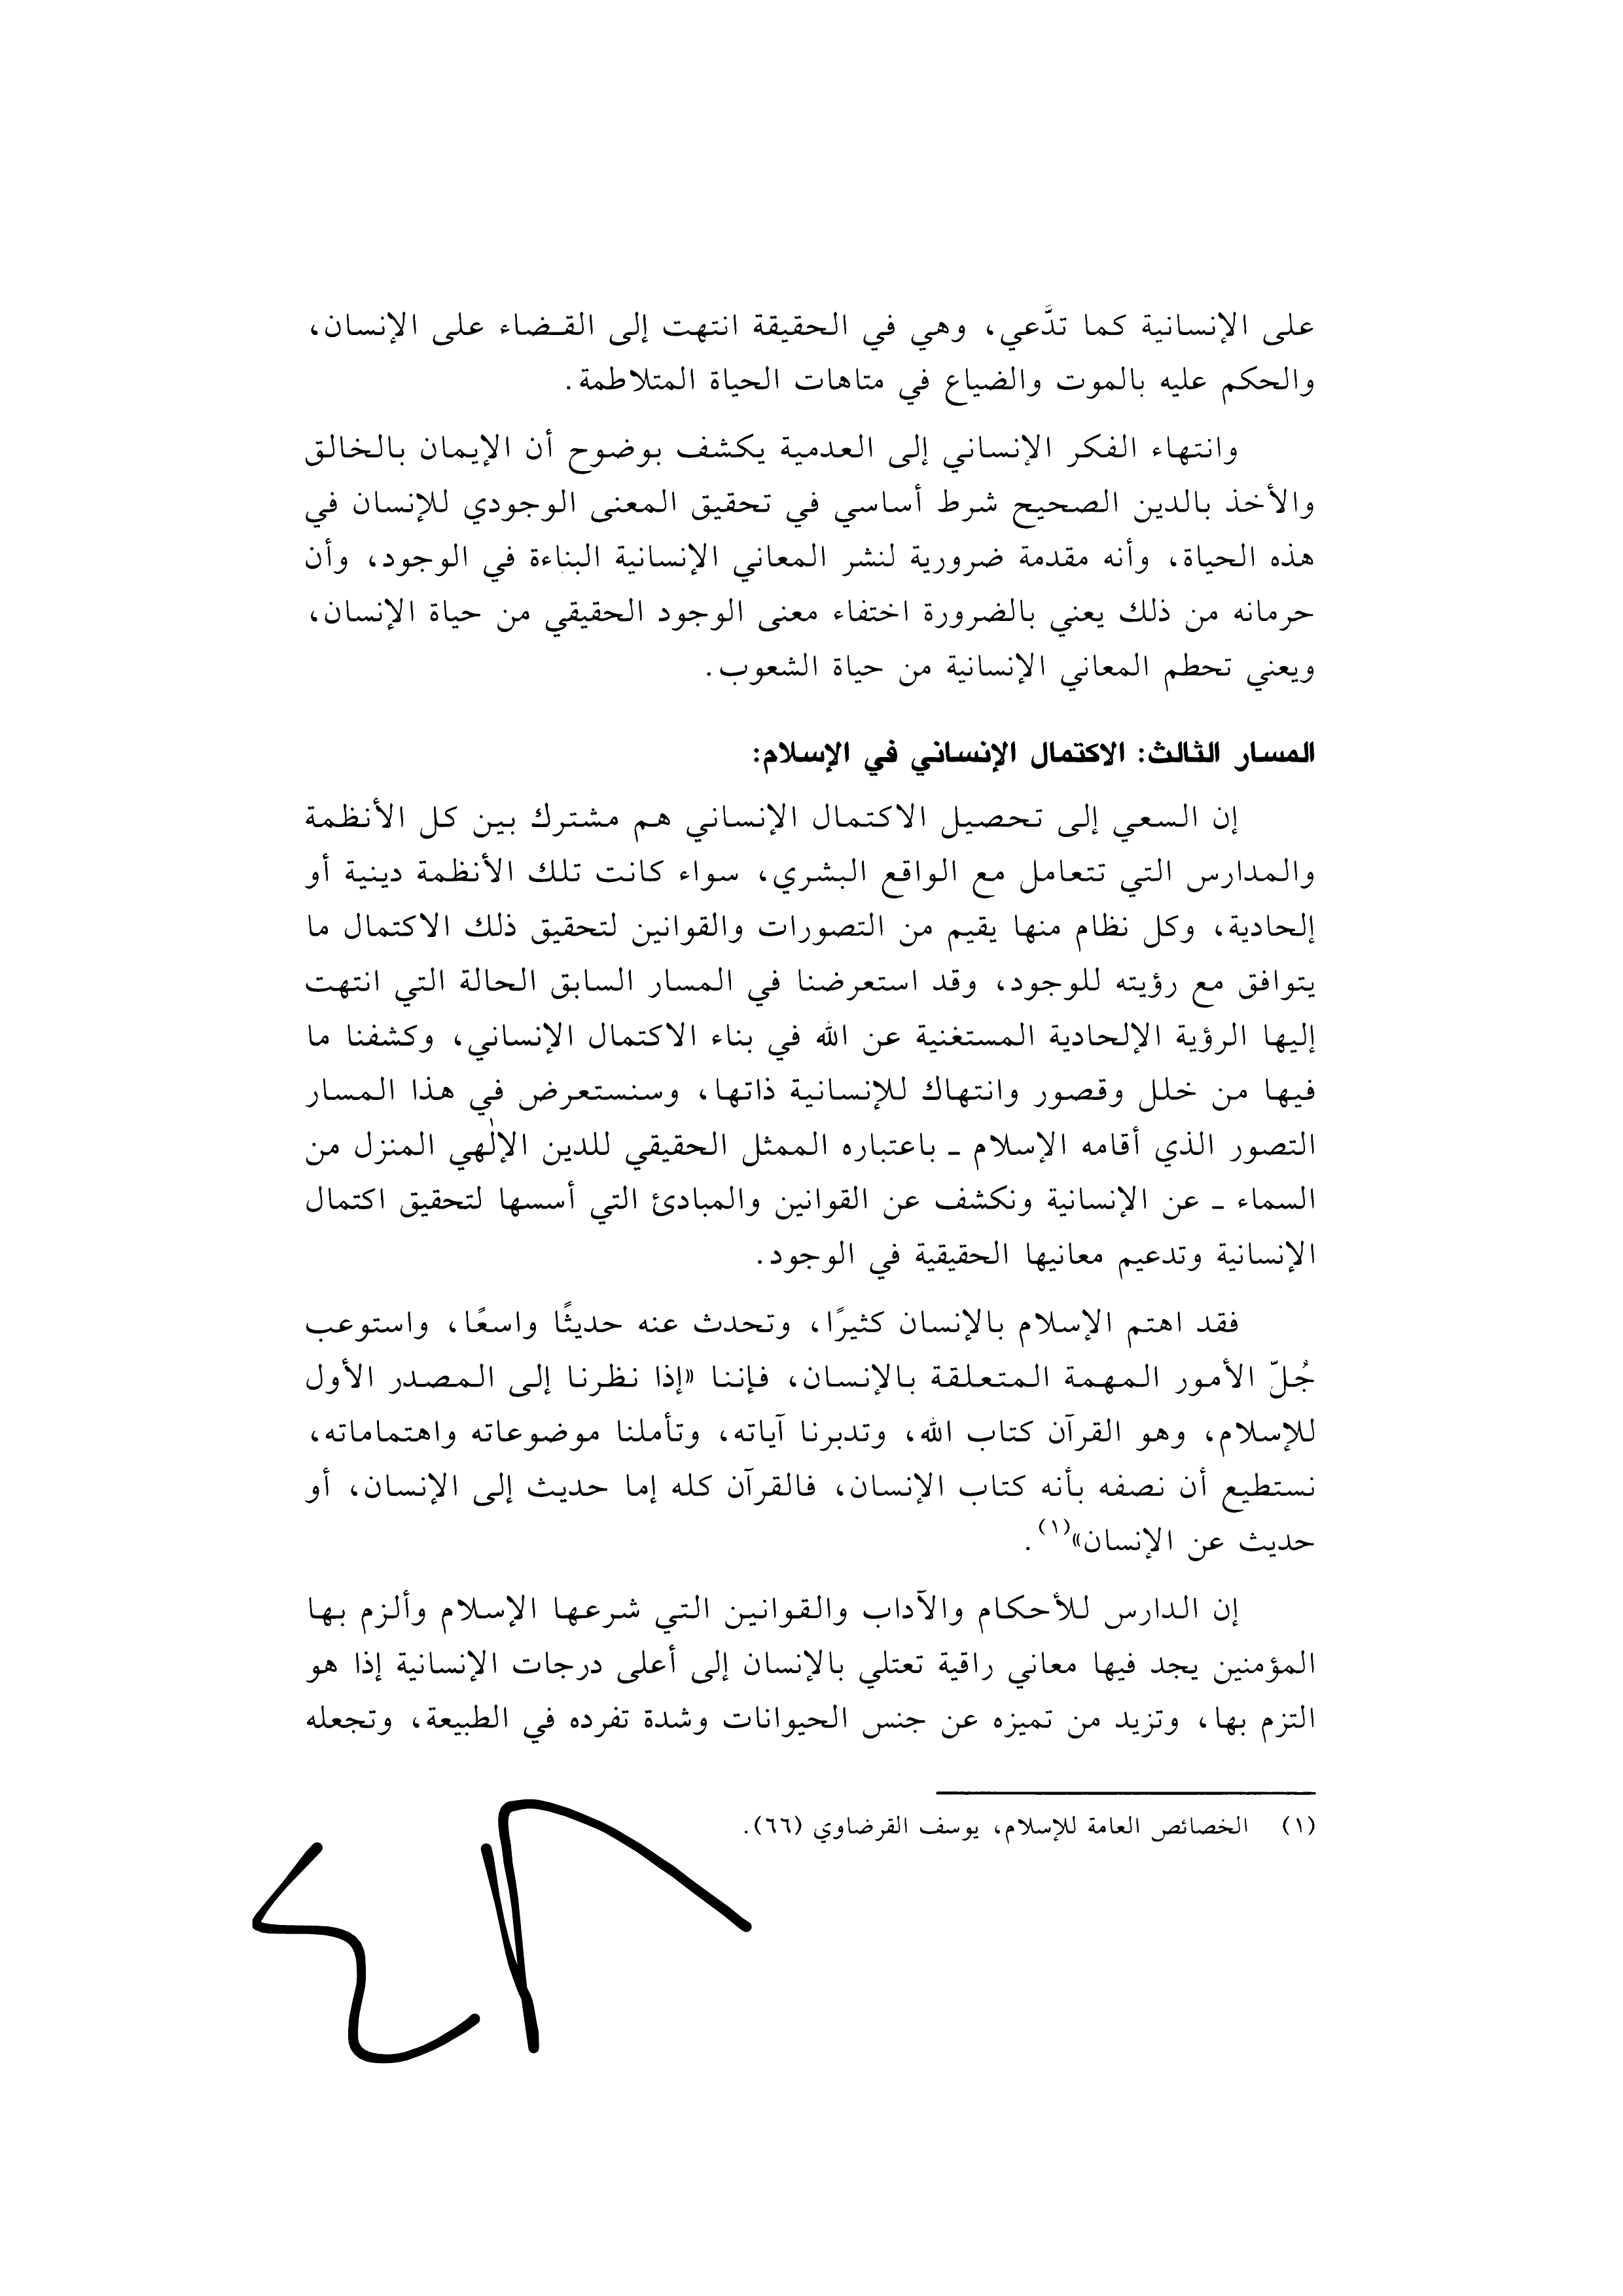 على الإنسانية كما تدَّعي، وهي في الحقيقة انتهت إلى القضاء على الإنسان،
والحكم عليه بالموت والضياع في متاهات الحياة المتلاطمة.
وانتهاء الفكر الإنساني إلى العدمية يكشف بوضوح أن الإيمان بالخالق
والأخذ بالدين الصحيح شرط أساسي في تحقيق المعنى الوجودي للإنسان في
هذه الحياة، وأنه مقدمة ضرورية لنشر المعاني الإنسانية البناءة في الوجود، وأن
حرمانه من ذلك يعني بالضرورة اختفاء معنى الوجود الحقيقي من حياة الإنسان،
ويعني تحطم المعاني الإنسانية من حياة الشعوب.
المسار الثالث: الاكتمال الإنساني في الإسلام:
إن السعي إلى تحصيل الاكتمال الإنساني هم مشترك بين كل الأنظمة
والمدارس التي تتعامل مع الواقع البشري، سواء كانت تلك الأنظمة دينية أو
إلحادية، وكل نظام منها يقيم من التصورات والقوانين لتحقيق ذلك الاكتمال ما
يتوافق مع رؤيته للوجود، وقد استعرضنا في المسار السابق الحالة التي انتهت
إليها الرؤية الإلحادية المستغنية عن الله في بناء الاكتمال الإنساني، وكشفنا ما
فيها من خلل وقصور وانتهاك للإنسانية ذاتها، وسنستعرض في هذا المسار
التصور الذي أقامه الإسلام ـ باعتباره الممثل الحقيقي للدين الإلٰهي المنزل من
السماء ـ عن الإنسانية ونكشف عن القوانين والمبادئ التي أسسها لتحقيق اكتمال
الإنسانية وتدعيم معانيها الحقيقية في الوجود.
فقد اهتم الإسلام بالإنسان كثيرًا، وتحدث عنه حديثًا واسعًا، واستوعب
جُلّ الأمور المهمة المتعلقة بالإنسان، فإننا «إذا نظرنا إلى المصدر الأول
للإسلام، وهو القرآن كتاب الله، وتدبرنا آياته، وتأملنا موضوعاته واهتماماته،
نستطيع أن نصفه بأنه كتاب الإنسان، فالقرآن كله إما حديث إلى الإنسان، أو
حديث عن الإنسان»(١).
إن الدارس للأحكام والآداب والقوانين التي شرعها الإسلام وألزم بها
المؤمنين يجد فيها معاني راقية تعتلي بالإنسان إلى أعلى درجات الإنسانية إذا هو
التزم بها، وتزيد من تميزه عن جنس الحيوانات وشدة تفرده في الطبيعة، وتجعله
(١) الخصائص العامة للإسلام، يوسف القرضاوي (٦٦).